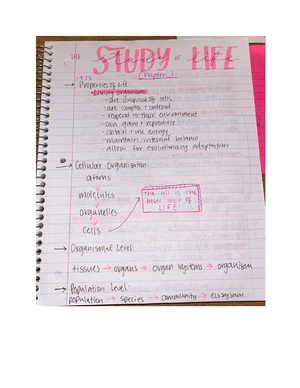 THE STUDY OF LIFE
Chapter 1
Properties of Life
Living organisms
- are composed of cells
- are complex + ordered
- respond to their environment
- can grow + reproduce
- obtain + use energy
- maintain internal balance
- allow for evolutionary adaptation
→ Cellular Organization:
atoms
molecules
organelles
cells
The cell is the
basic unit of
LIFE!
→ Organismal Level:
tissues → organs → organ systems → organism
→ Population Level:
population → species → community → ecosystem